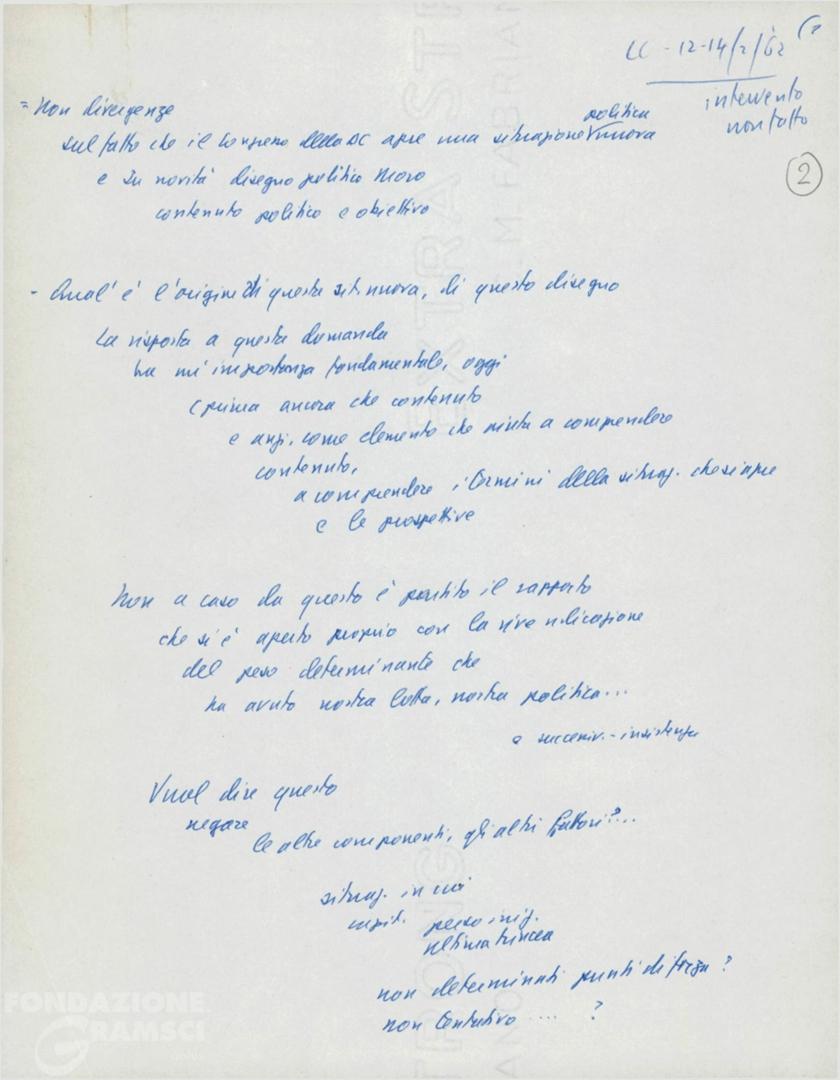 CC - 12-14/2/62
intervento
non fatto
2
= Non divergenze
politica
sul fatto che il Congresso della DC apre una situazione V nuova
e su novità disegno politico Moro
contenuto politico e obiettivo
- Qual'è l'origine di questa sit. nuova, di questo disegno
La risposta a questa domanda
ha un'importanza fondamentale, oggi
(prima ancora che contenuto
e anzi, come elemento che aiuta a comprendere
contenuto,
a comprendere i termini della situaz. che si apre
e le prospettive
Non a caso da questo è partito il rapporto
che si è aperto proprio con la rivendicazione
del peso determinante che
ha avuto nostra lotta, nostra politica...
e successiv. - insistenza
Vuol dire questo
negare
le altre componenti, gli altri fattori?...
situaz. in cui
capit. perso iniz.
ultima trincea
non determinati punti di forza?
non tentativo .... ?
FONDAZIONE
GRAMSCI
EXTRA STRONG